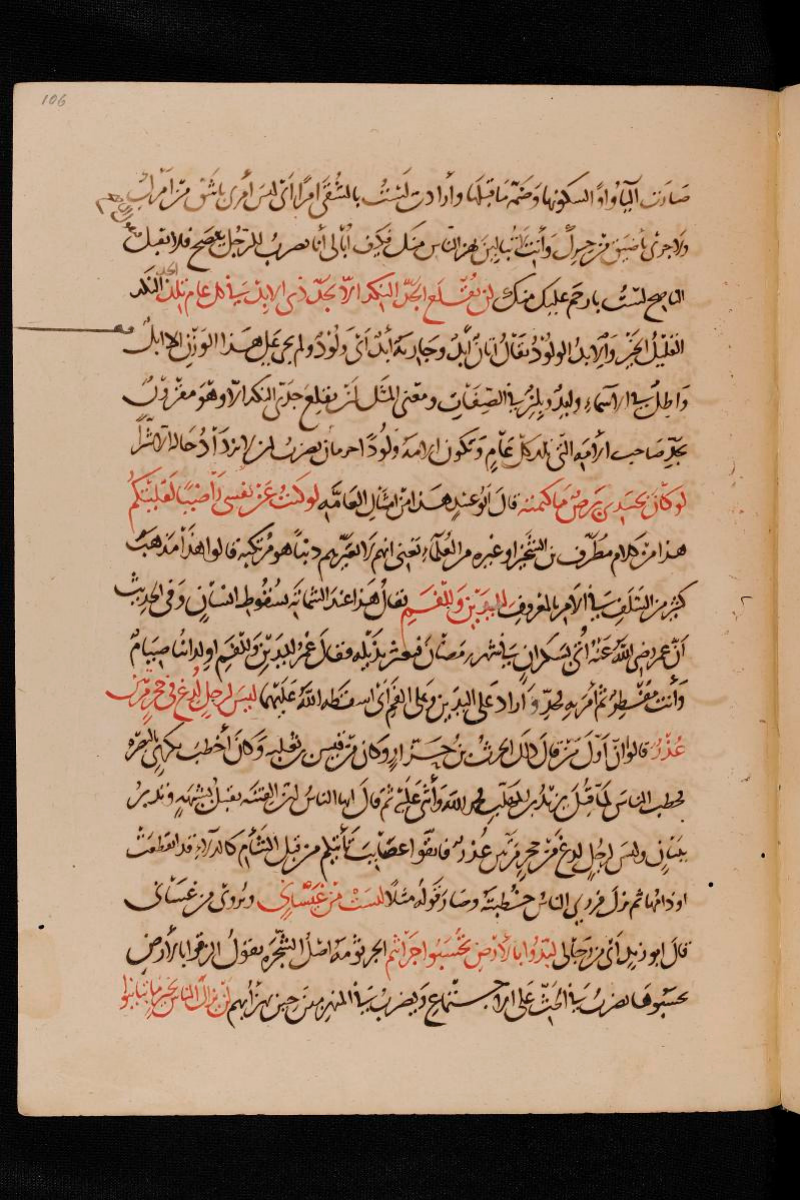 106
صارت الياء واوا لسكونها وضمة ما قبلها وأرادت لست بالشقى امرا اى ليس أمرى باشق من امرك
ولا حرى باضيق من حرك وأنت لا تبالين بهزء الناس منك فكيف أبالى أنا يضرب للرجل ينصح فلا يقبل
الناصح لست بارحم عليك منك لن يقلع الجد النكد الا بجد ذى الابد فى كل عام تلد الجد النكد
القليل الخير والابد الولود يقال اتان أبد وجارية أبد اى ولود ولم يجئ على هذا الوزن الا ابل
واطل فى الاسماء وابد وبلز فى الصفات ومعنى المثل لن يقلع جد النكد الا وهو مقرون
بجد صاحب الامة التى تلد كل عام وتكون الامة ولودا حرمان يضرب لمن لا يزداد حاله الا شرا
لو كان بجسدى برص ما كتمته قال أبو عبيد هذا من امثال العامة لو كنت عن نفسى راضيا لقليتكم
هذا من كلام مطرف بن الشخير او غيره من العلماء يعنى انهم لا اعيرهم ذنبا هو مرتكبه قالوا هذا مذهب
كثير من السلف فى الامر بالمعروف لليدين وللفم يقال هذا عند الشماتة بسقوط انسان وفى الحديث
أن عمر رضى الله عنه أتى بسكران فى شهر رمضان فعثر بذيله فقال عمر لليدين وللفم اولداننا صيام
وأنت مفطر ثم أمر به فحد وأراد على اليدين وعلى الفم أى اسقطه الله عليهما ليس لرجل لدغ فى جحر مرتين
عذر قالوا ان أول من قال ذلك الحرث بن خزاز وكان من قيس بن ثعلبة وكان أخطب بكرى بالبصرة
فخطب الناس لما قتل يزيد بن المهلب فحمد الله وأثنى عليه ثم قال ايها الناس ان الفتنة تقبل بشبهة وتدبر
ببيان وليس لرجل لدغ من جحر مرتين عذر فاتقوا عصائب تأتيكم من قبل الشأم كالدلاء قد انقطعت
اوذامها ثم نزل فروى الناس خطبته وصار قوله مثلا لست من غيسانى ويروى من غسانى
قال ابو زيد أى من رجالى لبدوا بالارض تحسبوا جراثيم الجرثومة اصل الشجرة يقول الزقوا بالارض
تحسبوها يضرب فى الحث على الاجتماع ويضرب فى المنهزمين حين يهزأ بهم لن يزال الناس بخير ما تباينوا